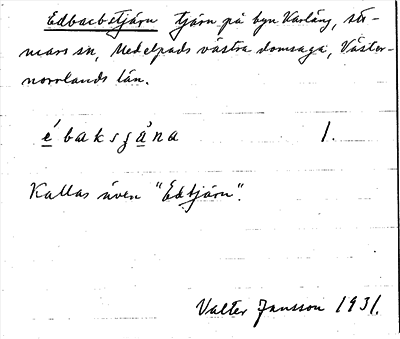 Edbackstjärn tjärn på byn Varläng, Stö-
mars sn, Medelpads västra domsaga, Väster-
norrlands län.
é baksgåna 1.
Kallas även "Edtjärn".
Valter Jansson 1931.